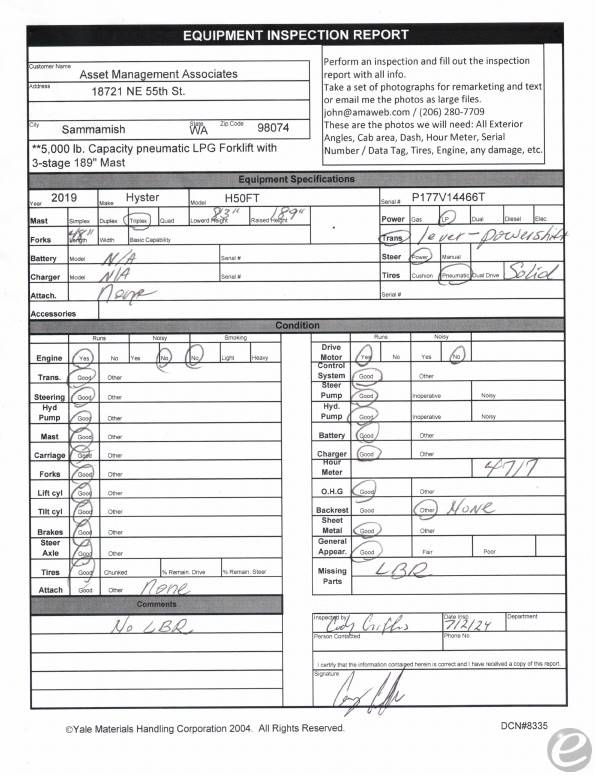 EQUIPMENT INSPECTION REPORT
Customer Name
Asset Management Associates
Address
18721 NE 55th St.
City State Zip Code
Sammamish WA 98074
**5,000 lb. Capacity pneumatic LPG Forklift with
3-stage 189" Mast
Perform an inspection and fill out the inspection
report with all info.
Take a set of photographs for remarketing and text
or email me the photos as large files.
john@amaweb.com / (206) 280-7709
These are the photos we will need: All Exterior
Angles, Cab area, Dash, Hour Meter, Serial
Number / Data Tag, Tires, Engine, any damage, etc.
Equipment Specifications
Year 2019 Make Hyster Model H50FT Serial # P177V14466T
Mast Simplex Duplex Triplex Quad Lowerd Height 83" Raised Height 189"
Power Gas LP Dual Diesel Elec.
Forks Length 48" Width Basic Capability
Trans lever-powershift
Battery Model N/A Serial #
Steer Power Manual
Charger Model N/A Serial #
Tires Cushion Pneumatic Dual Drive Solid
Attach. None Serial #
Accessories
Condition
Runs Noisy Smoking
Engine Yes No Yes No No Light Heavy
Trans. Good Other
Steering Good Other
Hyd Pump Good Other
Mast Good Other
Carriage Good Other
Forks Good Other
Lift cyl Good Other
Tilt cyl Good Other
Brakes Good Other
Steer Axle Good Other
Tires Good Chunked % Remain. Drive % Remain. Steer
Attach Good Other None
Comments
No LBR
Runs Noisy
Drive Motor Yes No Yes No
Control System Good Other
Steer Pump Good Inoperative Noisy
Hyd. Pump Good Inoperative Noisy
Battery Good Other
Charger Good Other
Hour Meter 4717
O.H.G Good Other
Backrest Good Other None
Sheet Metal Good Other
General Appear. Good Fair Poor
Missing Parts LBR
Inspected by Cody Griffis Date Insp. 7/2/24 Department
Person Contacted Phone No.
I certify that the information contained herein is correct and I have received a copy of this report.
Signature
©Yale Materials Handling Corporation 2004. All Rights Reserved.
DCN#8335
e